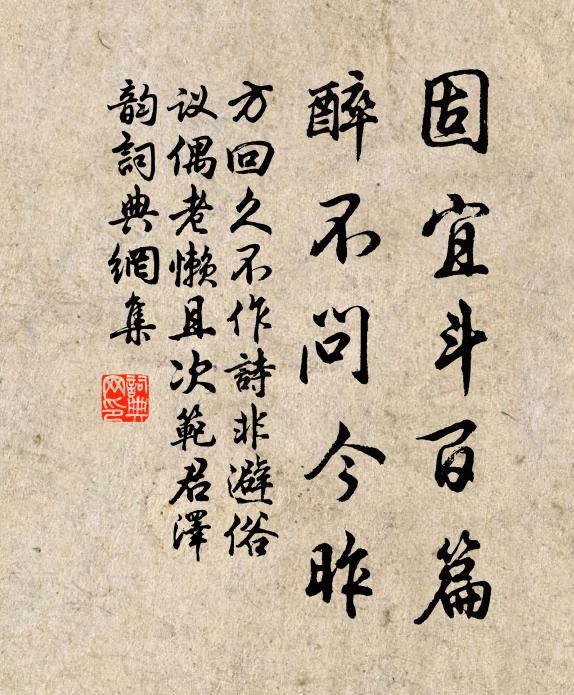 固宜斗百篇
醉不问今昨
方回久不作詩非避俗
议偶老懒且次範君澤
韵詞典網集
詞典网印